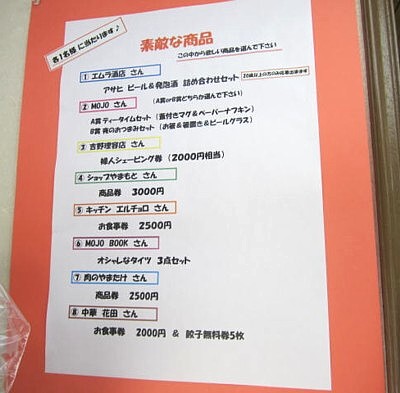 各1名様に当たります♪
素敵な商品
この中から欲しい商品を選んで下さい
① エムラ酒店 さん
20歳以上の方のみ応募出来ます
アサヒ ビール&発泡酒 詰め合わせセット
② MOJO さん
(A賞orB賞どちらか選んで下さい)
A賞 ティータイムセット (蓋付きマグ&ペーパーナフキン)
B賞 夜のおつまみセット (お箸&箸置き&ビールグラス)
③ 吉野理容店 さん
婦人シェービング券 (2000円相当)
④ ショップやまもと さん
商品券 3000円
⑤ キッチン エルチョロ さん
お食事券 2500円
⑥ MOJO BOOK さん
オシャレなタイツ 3点セット
⑦ 肉のやまたけ さん
商品券 2500円
⑧ 中華 花田 さん
お食事券 2000円 & 餃子無料券5枚